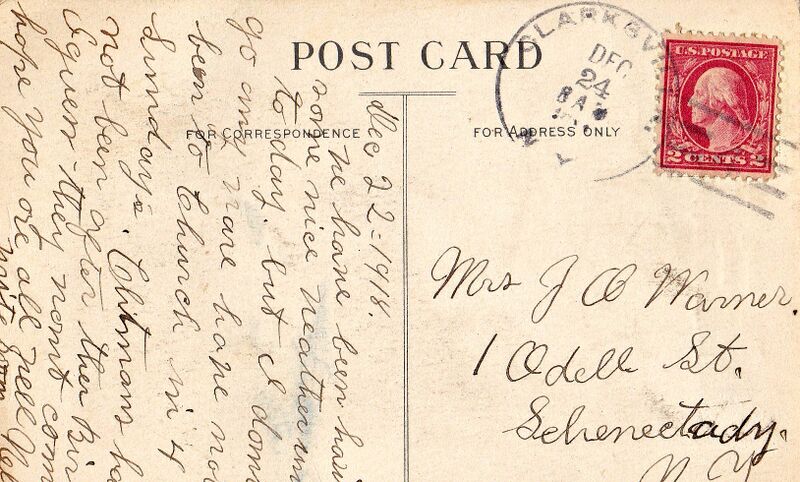 POST CARD
FOR CORRESPONDENCE
FOR ADDRESS ONLY
CLARKSV
DEC
24
8 A
N Y
U.S. POSTAGE
2 CENTS 2
Dec 22-1918.
we have been hav
some nice weather
today, but I don
go any more have no
been to Church in 4
Sunday's.
not been after ther Bir
I guess they wont com
hope you are all well
write soon
Mrs J O Warner.
1 Odell St.
Schenectady.
N Y